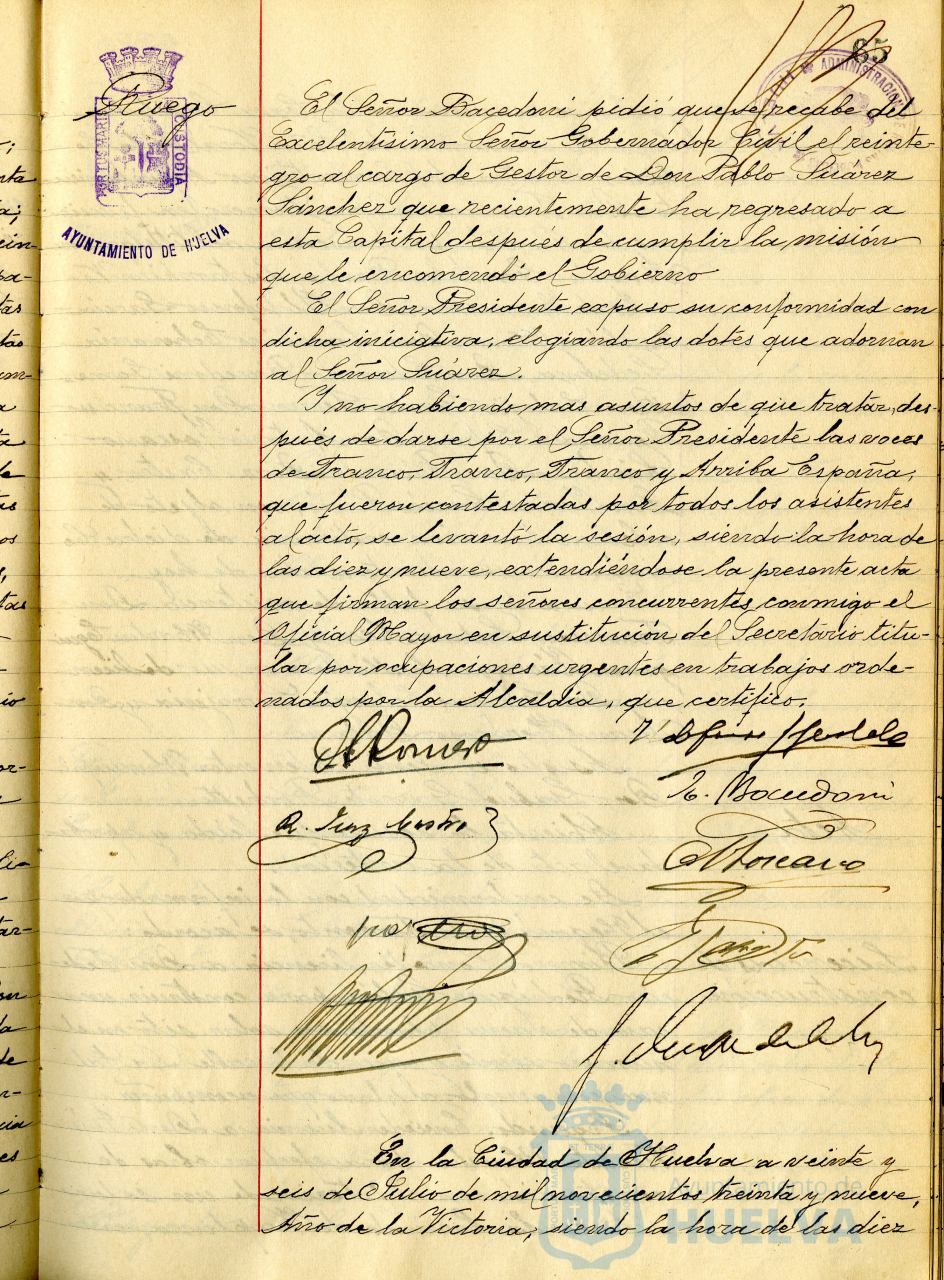 65
ADMINISTRACION
Ruego
PORTUS MARIS
CUSTODIA
AYUNTAMIENTO DE HUELVA
El Señor Bacedoni pidió que se recabe del
Excelentísimo Señor Gobernador Civil el reinte-
gro al cargo de Gestor de Don Pablo Suárez
Sánchez que recientemente ha regresado a
esta Capital después de cumplir la misión
que le encomendó el Gobierno
El Señor Presidente expuso su conformidad con
dicha iniciativa, elogiando las dotes que adornan
al Señor Suárez.
Y no habiendo mas asuntos de que tratar, des-
pués de darse por el Señor Presidente las voces
de Franco, Franco, Franco y Arriba España,
que fueron contestadas por todos los asistentes
al acto, se levantó la sesión, siendo la hora de
las diez y nueve, extendiéndose la presente acta
que firman los señores concurrentes conmigo el
Oficial Mayor en sustitución del Secretario titu-
lar por ocupaciones urgentes en trabajos orde-
nados por la Alcaldía, que certifico.
Romero
E. Bacedoni
Toscano
En la Ciudad de Huelva a veinte y
seis de Julio de mil novecientos treinta y nueve,
Año de la Victoria, siendo la hora de las diez
Ayuntamiento de
HUELVA